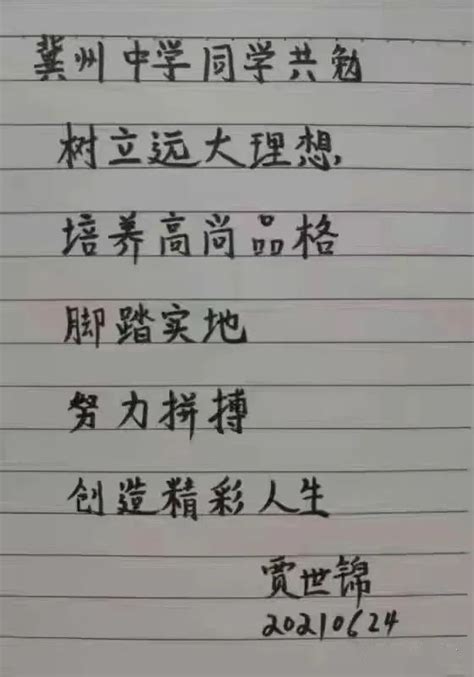 冀州中学同学共勉
树立远大理想,
培养高尚品格
脚踏实地
努力拼搏
创造精彩人生
贾世锦
20210624